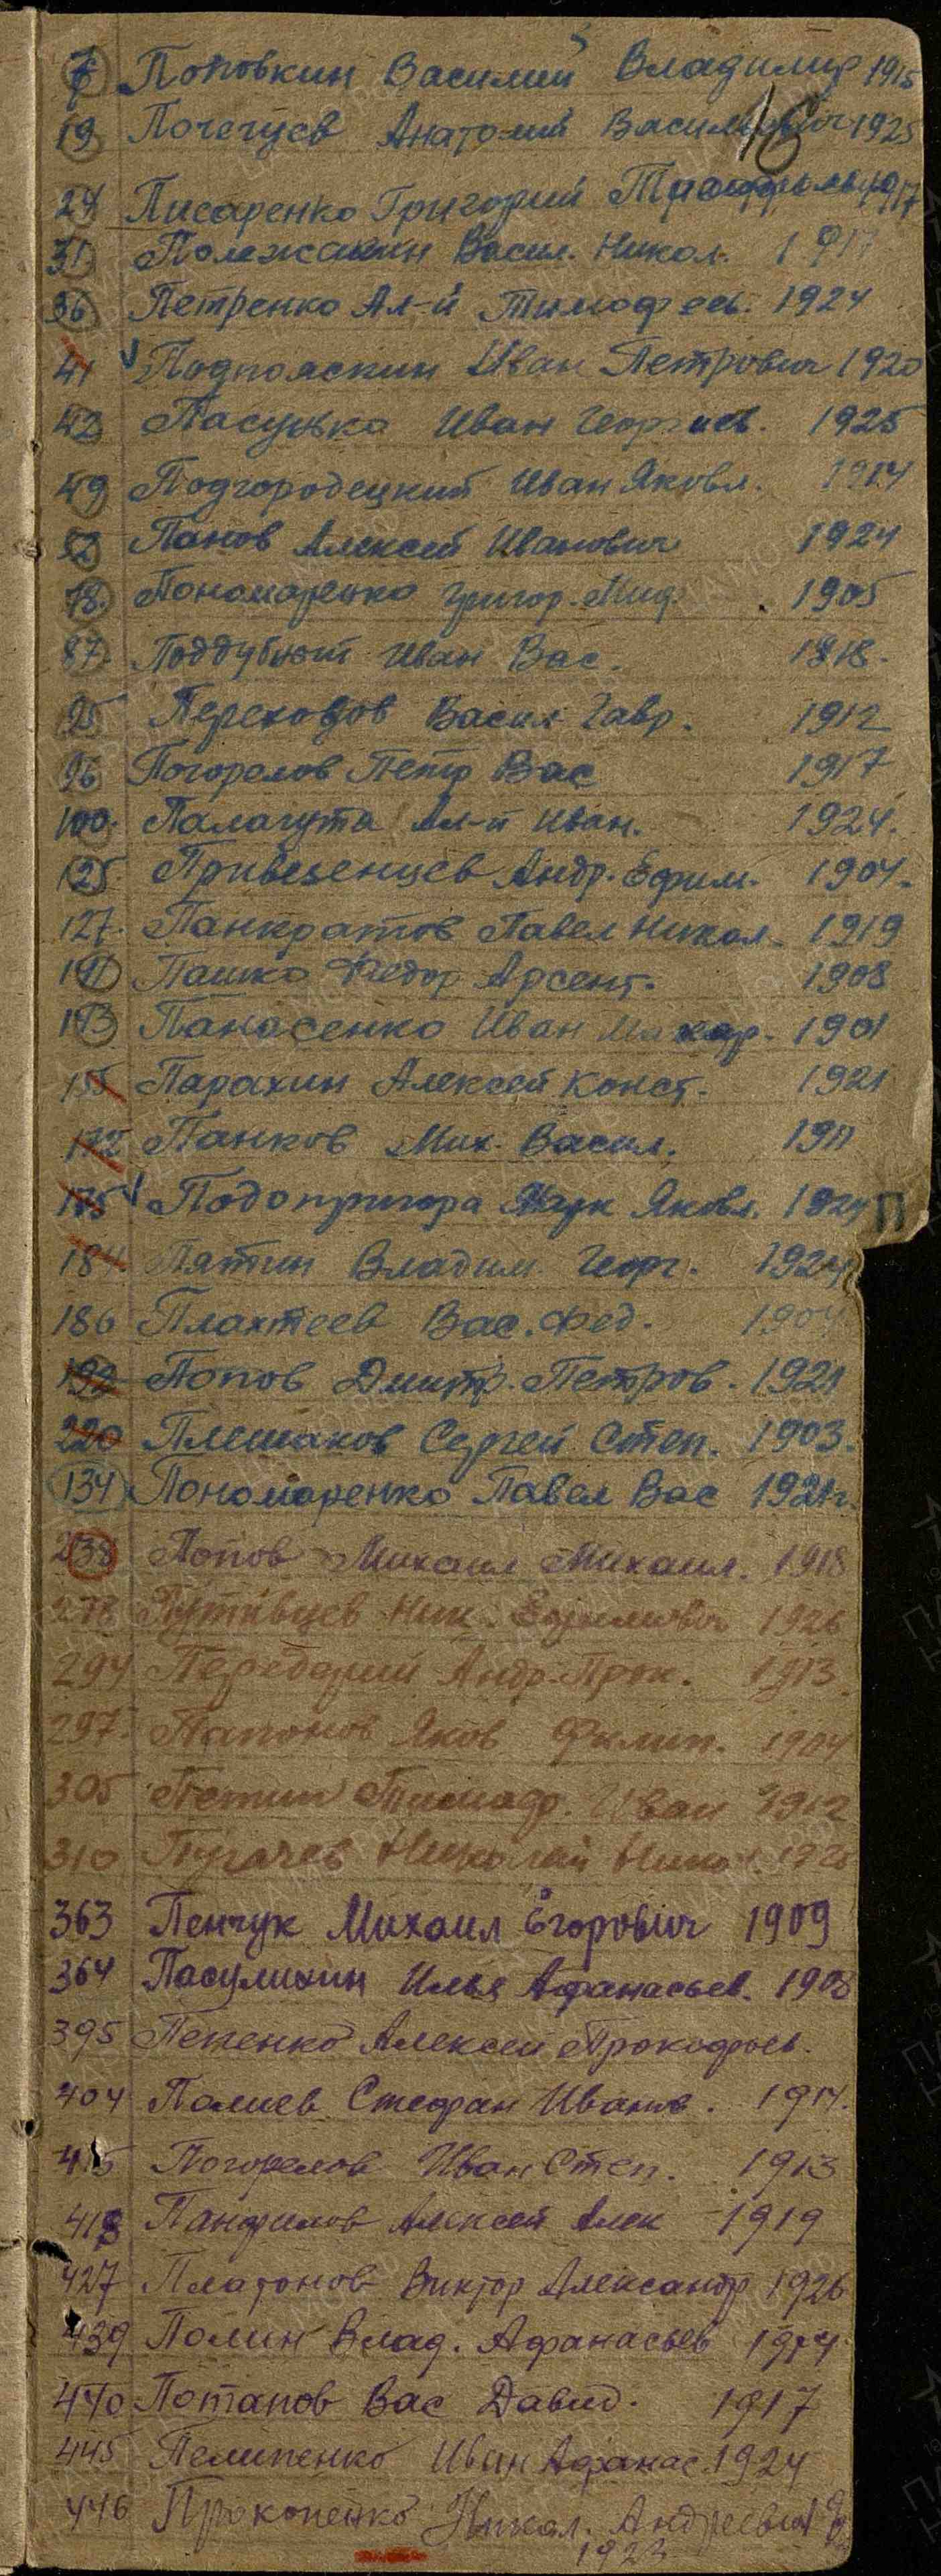 7 Поповкин Василий Владимир 1915
16
19 Почечуев Анатолий Васильевич 1925
24 Писаренко Григорий
31 Васил. Никол. 1917
36 Петренко Ал-й Тимофеев. 1924
41 Подпояскин Иван Петрович 1920
42 Пасунько Иван Георгиев. 1925
49 Подгородецкий Иван Яковл. 1914
52 Панов Алексей Иванович 1924
78. Пономаренко Григор. Мит. 1905
87. Поддубный Иван Вас. 1918.
95 Переходов Васил Гавр. 1912
96 Погорелов Петр Вас 1917
100. Палагута Ал-й Иван. 1924.
125. Привезенцев Андр. Ефим. 1904.
127. Панкратов Павел Никол. 1919
141 Пашко Федор Арсент. 1908
143 Панасенко Иван Макар. 1901
155 Парахин Алексей Конст. 1921
172 Панков Мих. Васил. 1911
175 Подопригора Яковл. 1924 П
184. Пятин Владим Георг. 1924
186 Плахтеев Вас. Фед. 1904
192 Попов Дмитр. Петров. 1921
220 Плешаков Сергей Степ. 1903.
134 Пономаренко Павел Вас 1921г.
238 Попов Михаил Михаил. 1918
278 Путивцев Ник. Ефимович 1926
294 Передерий Андр. Прок. 1913.
297. Папонов Яков Филип. 1904
305 Петин Тимоф. Иван 1912
310 Пугачев Николай Никол.
363 Пенчук Михаил Егорович 1909
364 Пасулихин Илья Афанасьев. 1908
395 Пепенко Алексей Прокофьев.
404 Палиев Стефан Иванов. 1914.
415 Погорелов Иван Степ. 1913
418 Панфилов Алексей Алек 1919
427 Платонов Виктор Александр 1926
439 Полин Влад. Афанасьев
440 Потапов Вас Давид. 1917
445 Пелипенко Иван Афанас. 1924
446 Прокопенко Никол. Андреевич
1923